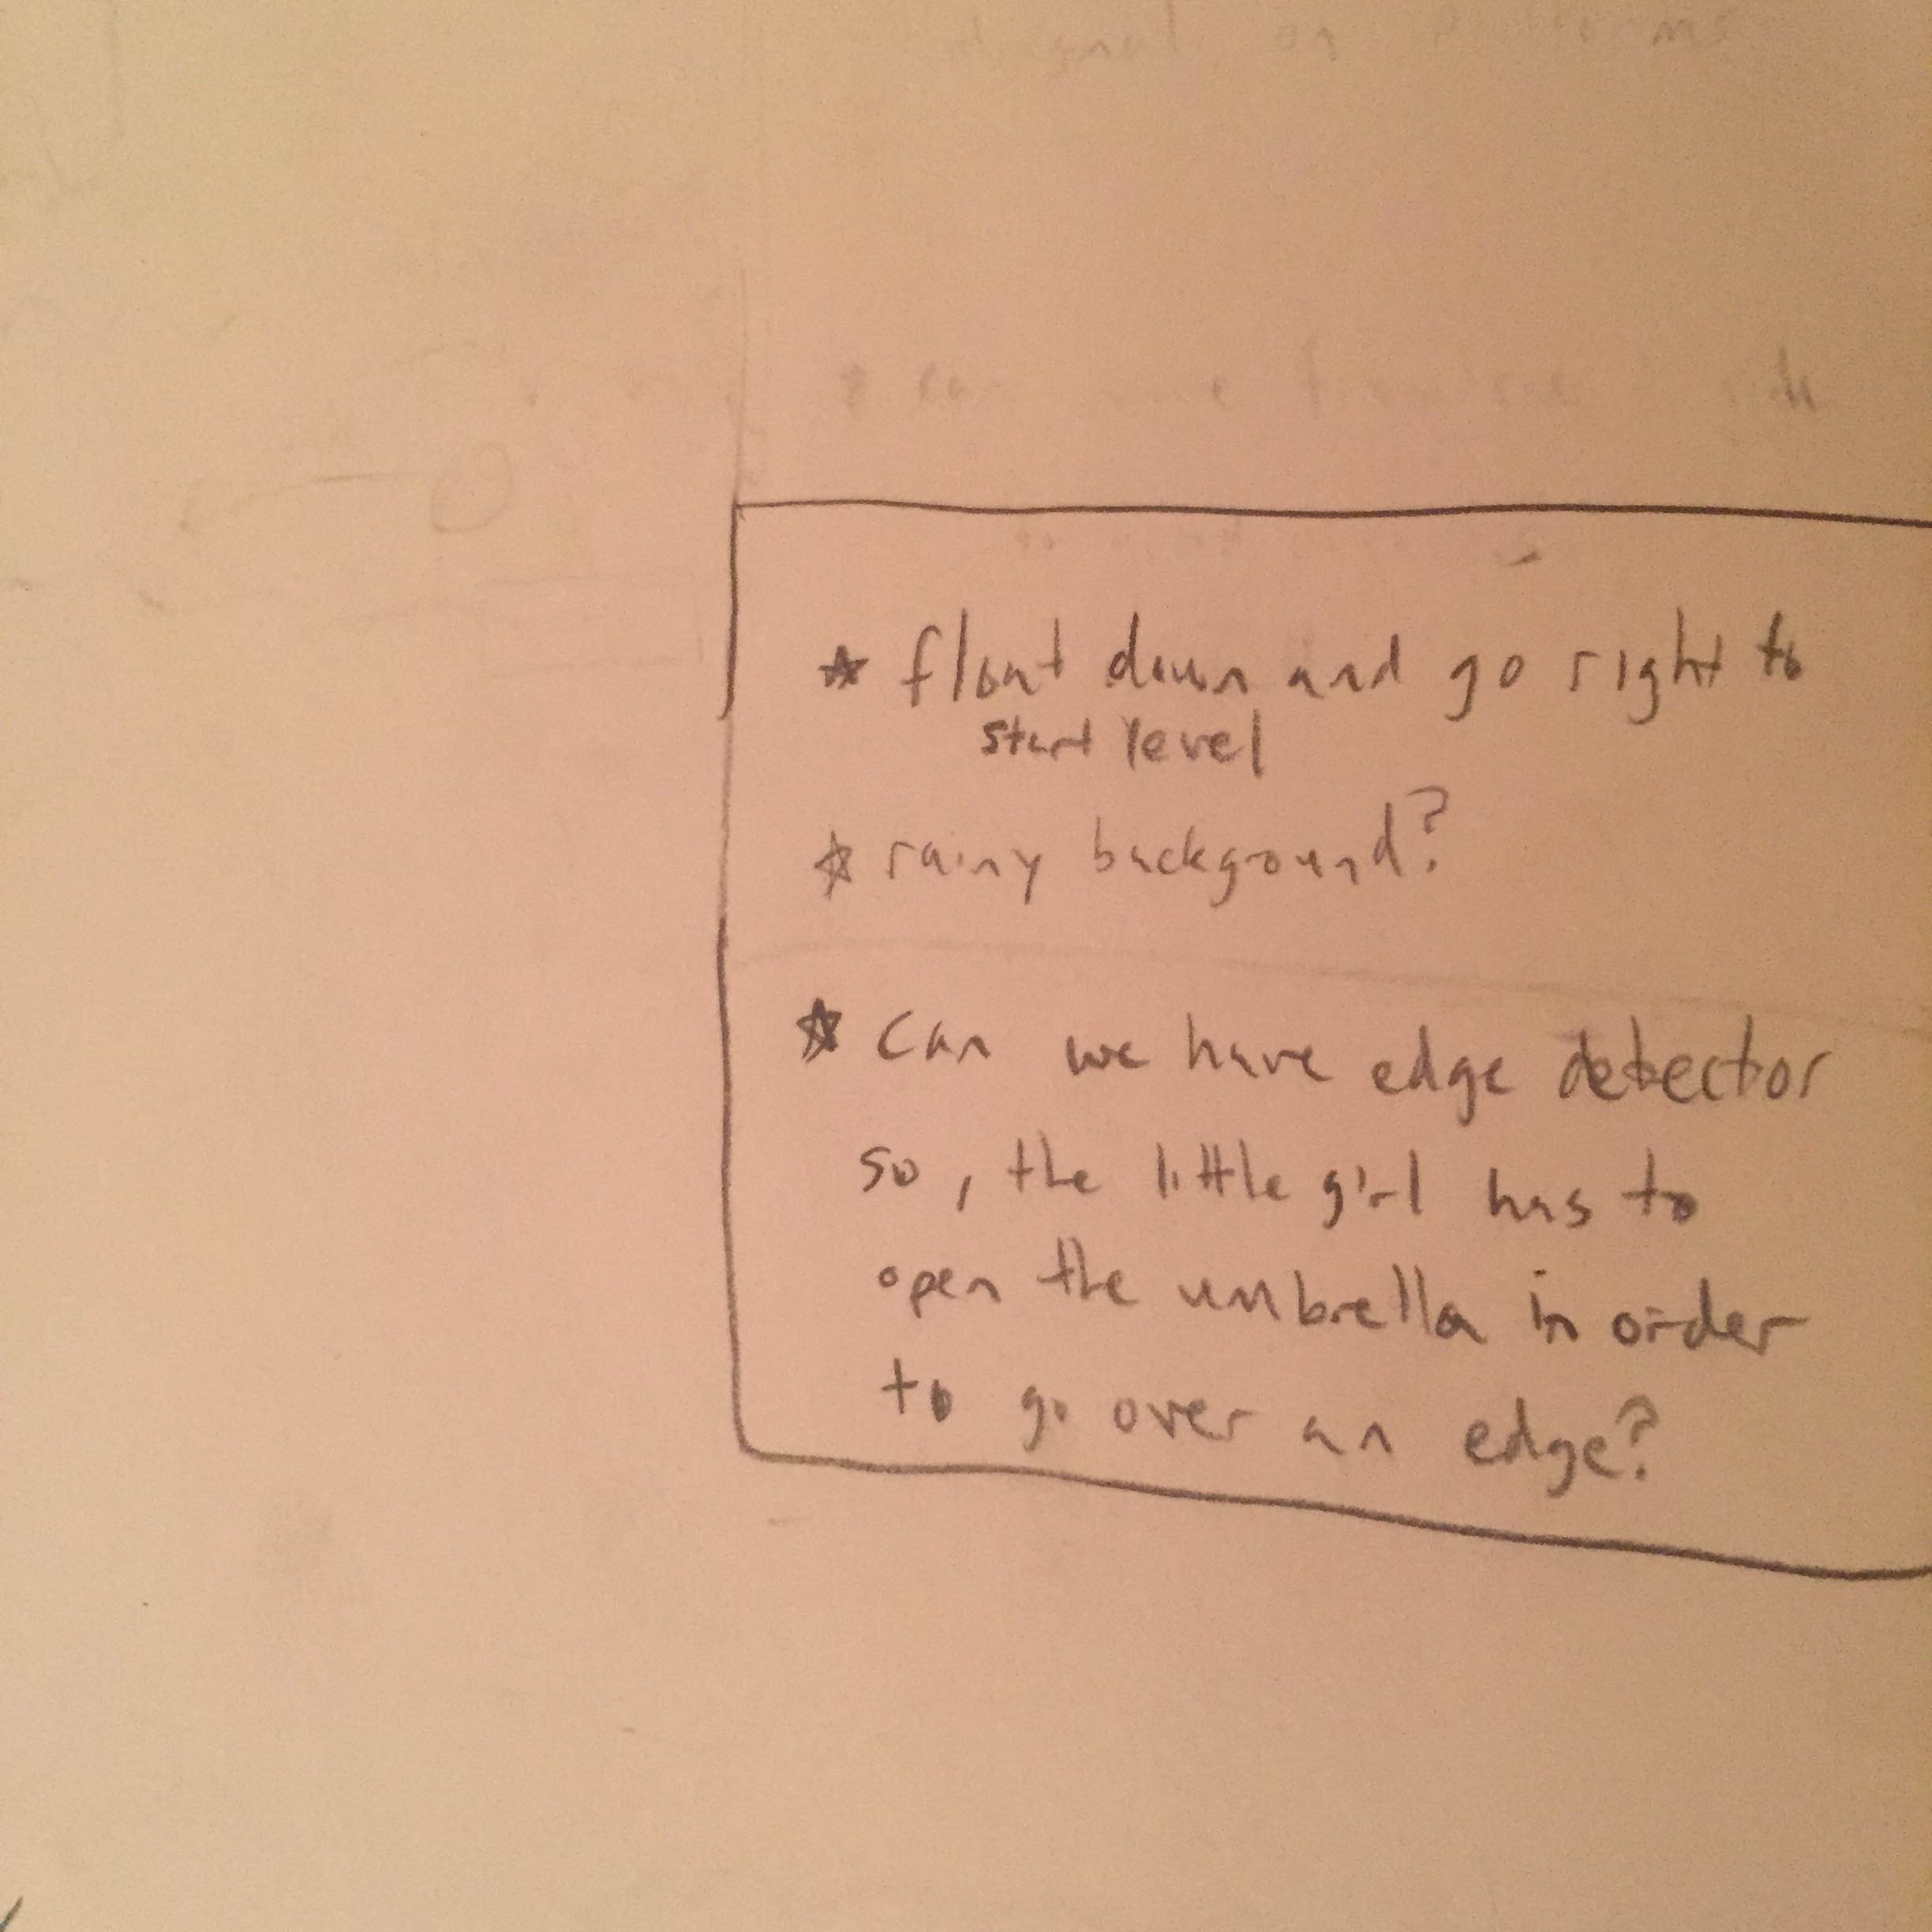 * float down and go right to
start level
* rainy background?
* can we have edge detector
so, the little girl has to
open the umbrella in order
to go over an edge?